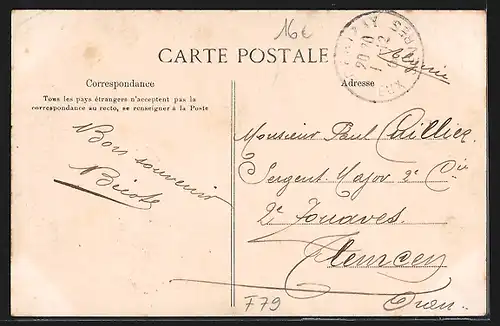 16€
CARTE POSTALE
Algérie
Correspondance
Tous les pays étrangers n'acceptent pas la
correspondance au recto, se renseigner à la Poste
Adresse
Bon souvenir
Monsieur Paul Caillier
Sergent Major 2e Cie
2e Zouaves.
Tlemcen
Oran.
F79